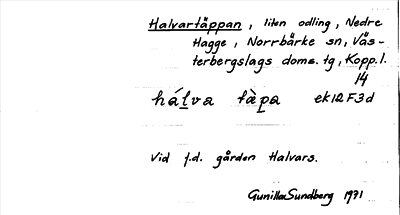 Halvartäppan, liten odling, Nedre
Hagge, Norrbärke sn, Väs-
terbergslags doms. tg, Kopp. l.
14
hálva tæ̀pa ek12F3d
Vid f.d. gården Halvars.
Gunilla Sundberg 1971